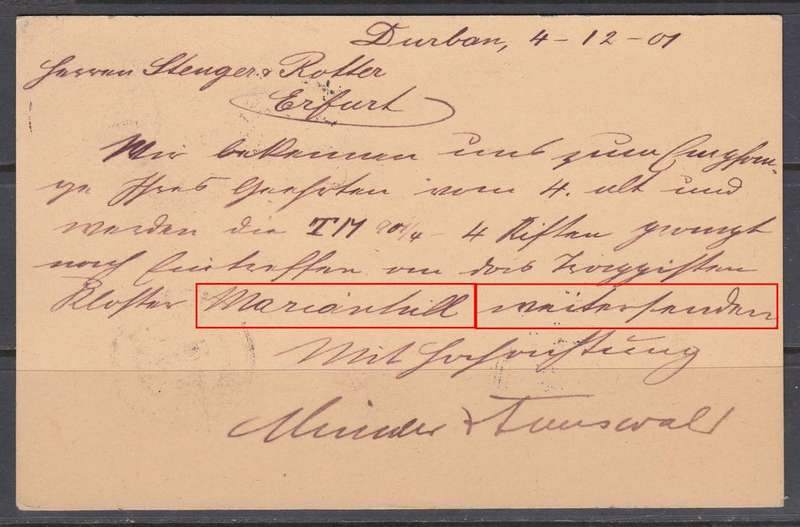 Durban, 4-12-01
Herren Stenger & Rotter
Erfurt
Wir bekennen uns zum Empfan-
ge Ihres Geehrten vom 4. ult und
werden die TM 901/4 - 4 Kisten prompt
nach Eintreffen an das Trappisten
Kloster Marianhill weitersenden
Mit Hochachtung